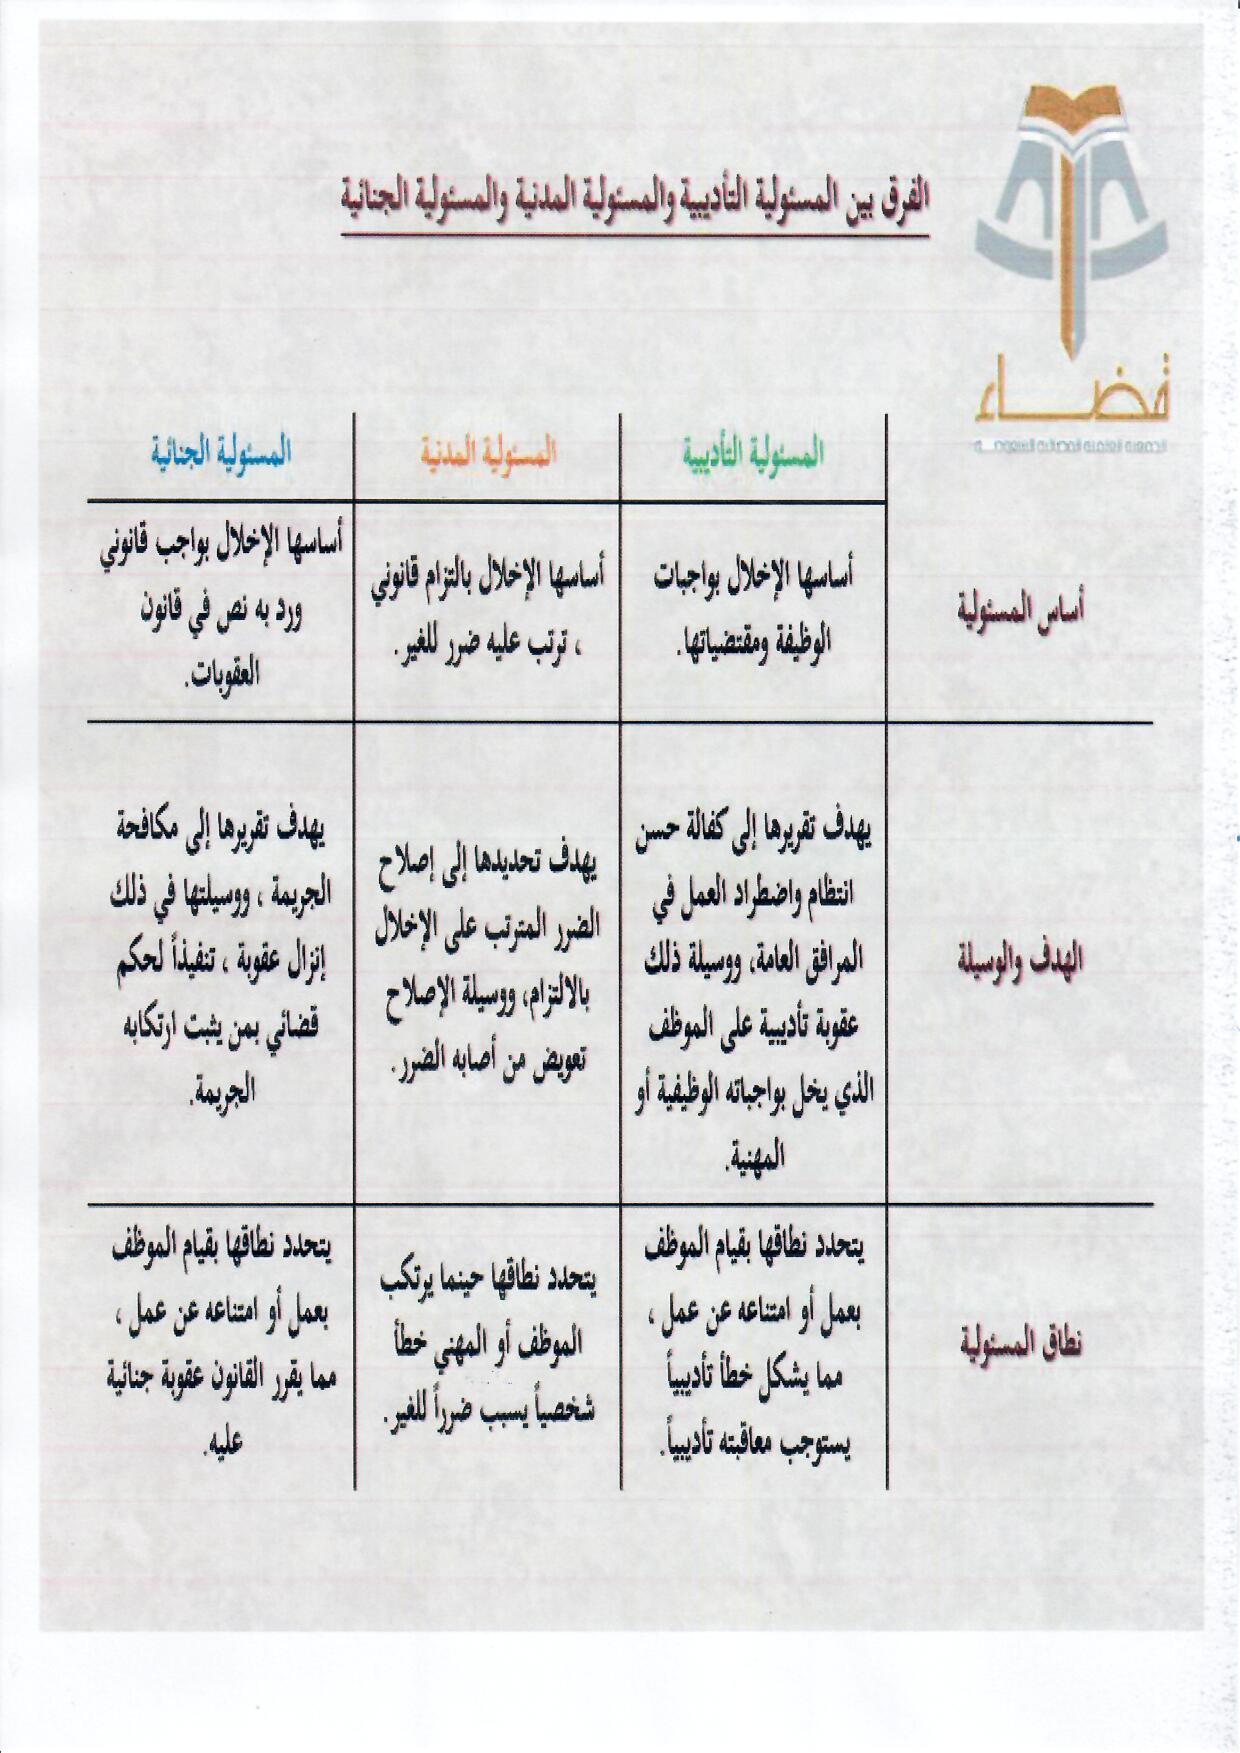 قضاء
الفرق بين المسئولية التأديبية والمسئولية المدنية والمسئولية الجنائية
المسئولية التأديبية
المسئولية المدنية
المسئولية الجنائية
أساس المسئولية
أساسها الإخلال بواجبات
الوظيفة ومقتضياتها.
أساسها الإخلال بالتزام قانوني
، ترتب عليه ضرر للغير.
أساسها الإخلال بواجب قانوني
ورد به نص في قانون
العقوبات.
الهدف والوسيلة
يهدف تقريرها إلى كفالة حسن
انتظام واضطراد العمل في
المرافق العامة، ووسيلة ذلك
عقوبة تأديبية على الموظف
الذي يخل بواجباته الوظيفية أو
المهنية.
يهدف تحديدها إلى إصلاح
الضرر المترتب على الإخلال
بالالتزام، ووسيلة الإصلاح
تعويض من أصابه الضرر.
يهدف تقريرها إلى مكافحة
الجريمة ، ووسيلتها في ذلك
إنزال عقوبة ، تنفيذاً لحكم
قضائي بمن يثبت ارتكابه
الجريمة.
نطاق المسئولية
يتحدد نطاقها بقيام الموظف
بعمل أو امتناعه عن عمل ،
مما يشكل خطأ تأديبياً
يستوجب معاقبته تأديبياً.
يتحدد نطاقها حينما يرتكب
الموظف أو المهني خطأ
شخصياً يسبب ضرراً للغير.
يتحدد نطاقها بقيام الموظف
بعمل أو امتناعه عن عمل ،
مما يقرر القانون عقوبة جنائية
عليه.